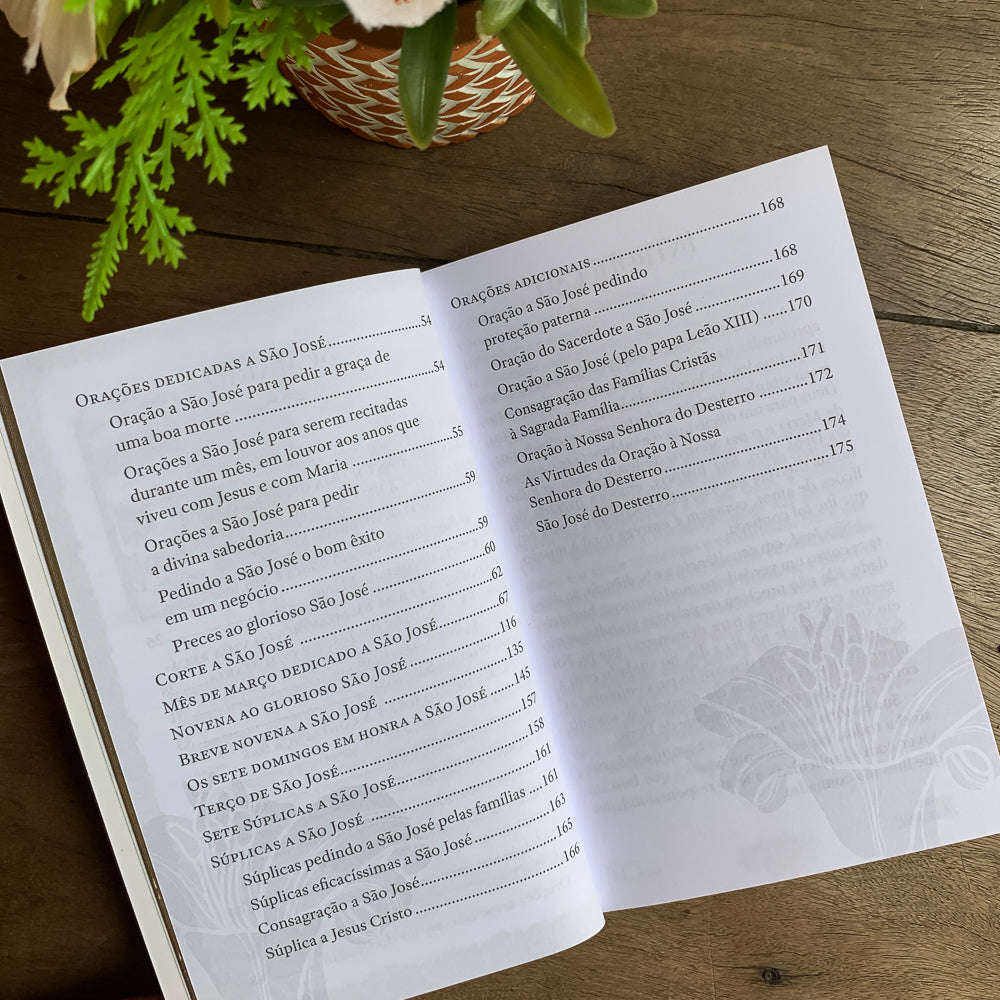 ORAÇÕES DEDICADAS A SÃO JOSÉ..................54
Oração a São José para pedir a graça de
uma boa morte ..................54
Orações a São José para serem recitadas
durante um mês, em louvor aos anos que
viveu com Jesus e com Maria ..................55
Orações a São José para pedir
a divina sabedoria..................59
Pedindo a São José o bom êxito
em um negócio ..................59
Preces ao glorioso São José ..................60
CORTE A SÃO JOSÉ ..................62
MÊS DE MARÇO DEDICADO A SÃO JOSÉ..................67
NOVENA AO GLORIOSO SÃO JOSÉ ..................116
BREVE NOVENA A SÃO JOSÉ ..................135
OS SETE DOMINGOS EM HONRA A SÃO JOSÉ ......145
TERÇO DE SÃO JOSÉ..................157
SETE SÚPLICAS A SÃO JOSÉ..................158
SÚPLICAS A SÃO JOSÉ ..................161
Súplicas pedindo a São José pelas famílias ....161
Súplicas eficacíssimas a São José ..................163
Consagração a São José..................165
Súplica a Jesus Cristo ..................166
ORAÇÕES ADICIONAIS..................168
Oração a São José pedindo
proteção paterna ..................168
Oração do Sacerdote a São José ..................169
Oração a São José (pelo papa Leão XIII) ......170
Consagração das Famílias Cristãs
à Sagrada Família..................171
Oração à Nossa Senhora do Desterro ..................172
As Virtudes da Oração à Nossa
Senhora do Desterro ..................174
São José do Desterro ..................175